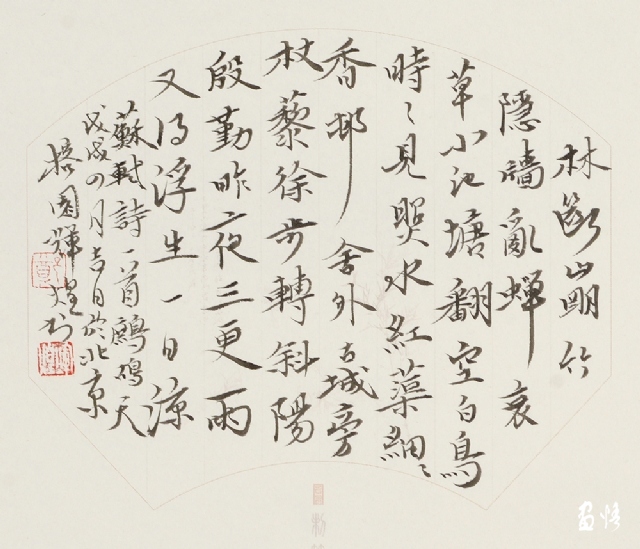 林斷山明竹
隱牆亂蟬衰
草小池塘翻空白鳥
時〻見照水紅蕖細〻
香邨舍外古城旁
杖藜徐步轉斜陽
殷勤昨夜三更雨
又得浮生一日涼
蘇軾詩一首鷓鴣天
戊戌四月吉日於北京
園輝煌書